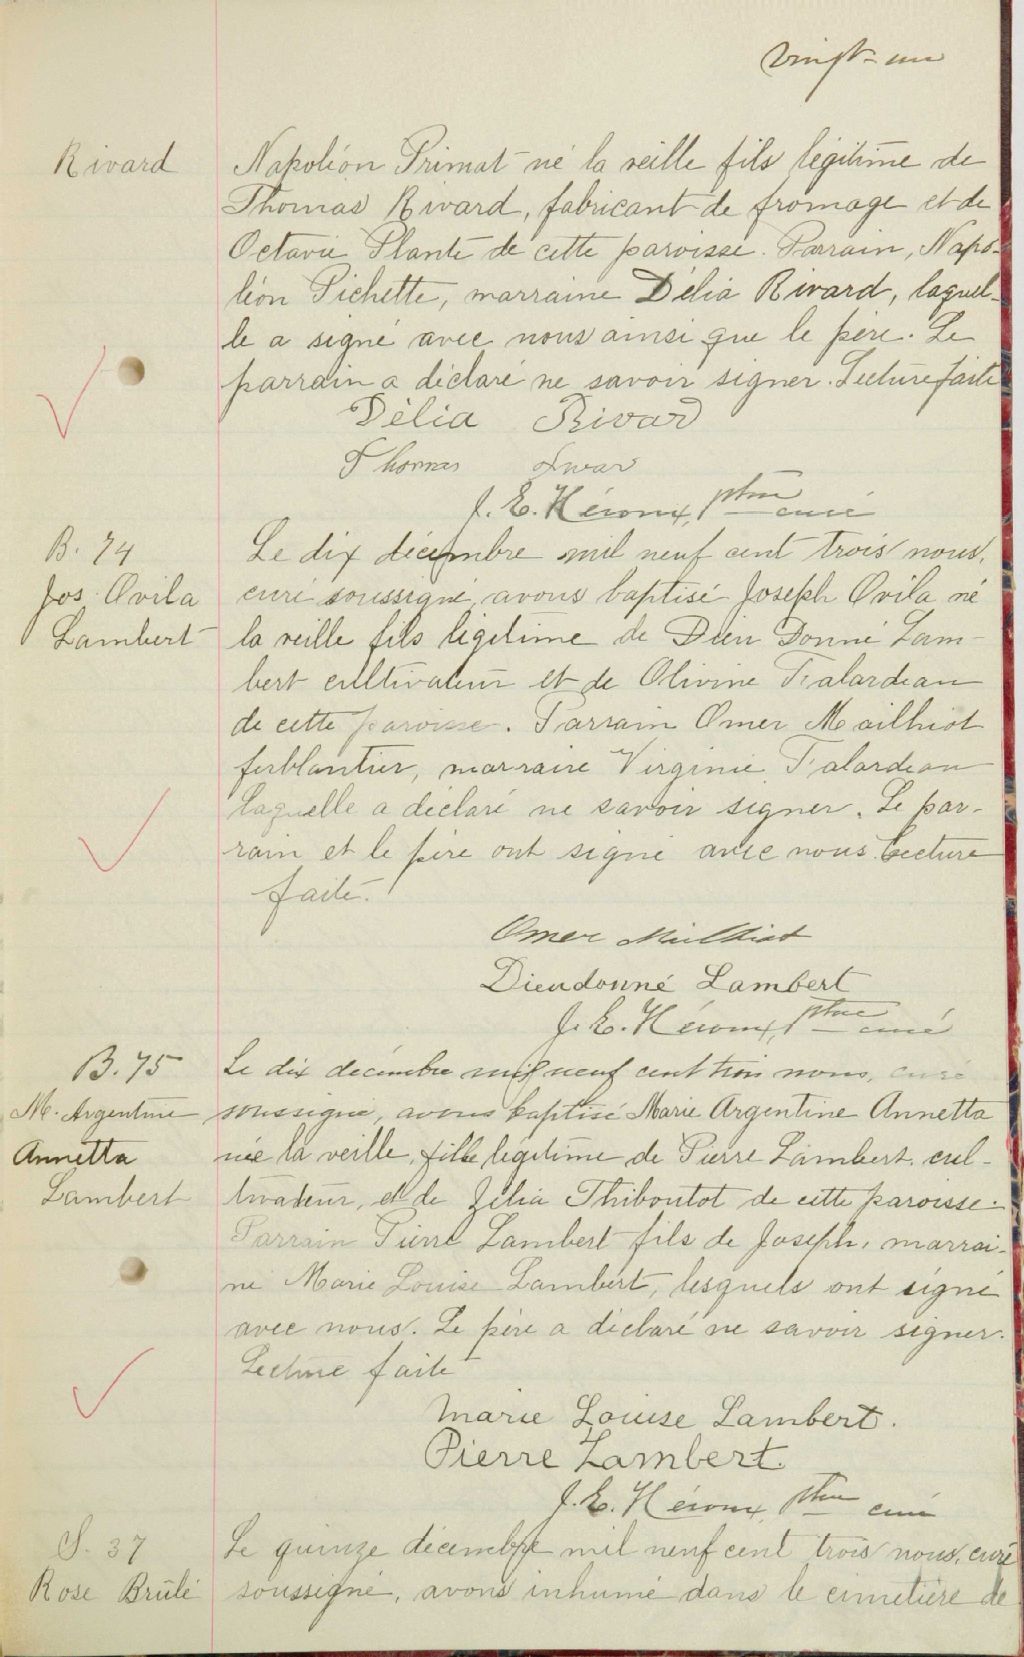 vingt-un
Rivard
Napoléon Primat né la veille fils légitime de
Thomas Rivard, fabricant de fromage et de
Octavie Plante de cette paroisse. Parrain, Napo-
léon Pichette, marraine Délia Rivard, laquel-
le a signé avec nous ainsi que le père. Le
parrain a déclaré ne savoir signer. Lecture faite
Délia Rivard
Thomas
J. E. Héroux, Ptre curé
B. 74
Jos Ovila
Lambert
Le dix décembre mil neuf cent trois nous,
curé soussigné, avons baptisé Joseph Ovila né
la veille fils légitime de Dieu Donné Lam-
bert cultivateur et de Olivine Talardeau
de cette paroisse. Parrain Omer Mailhiot
ferblantier, marraine Virginie Talardeau
laquelle a déclaré ne savoir signer. Le par-
rain et le père ont signé avec nous. Lecture
faite.
Omer Mailhiot
Dieudonné Lambert
J. E. Héroux, Ptre curé
B. 75
M. Argentine
Annetta
Lambert
Le dix décembre mil neuf cent trois nous, curé
soussigné, avons baptisé Marie Argentine Annetta
née la veille, fille légitime de Pierre Lambert, cul-
tivateur, et de Zélia Thiboutot de cette paroisse.
Parrain Pierre Lambert fils de Joseph, marrai-
ne Marie Louise Lambert, lesquels ont signé
avec nous. Le père a déclaré ne savoir signer.
Lecture faite
Marie Louise Lambert.
Pierre Lambert.
J. E. Héroux, Ptre curé
S. 37
Rose Brûlé
Le quinze décembre mil neuf cent trois nous, curé
soussigné, avons inhumé dans le cimetière de